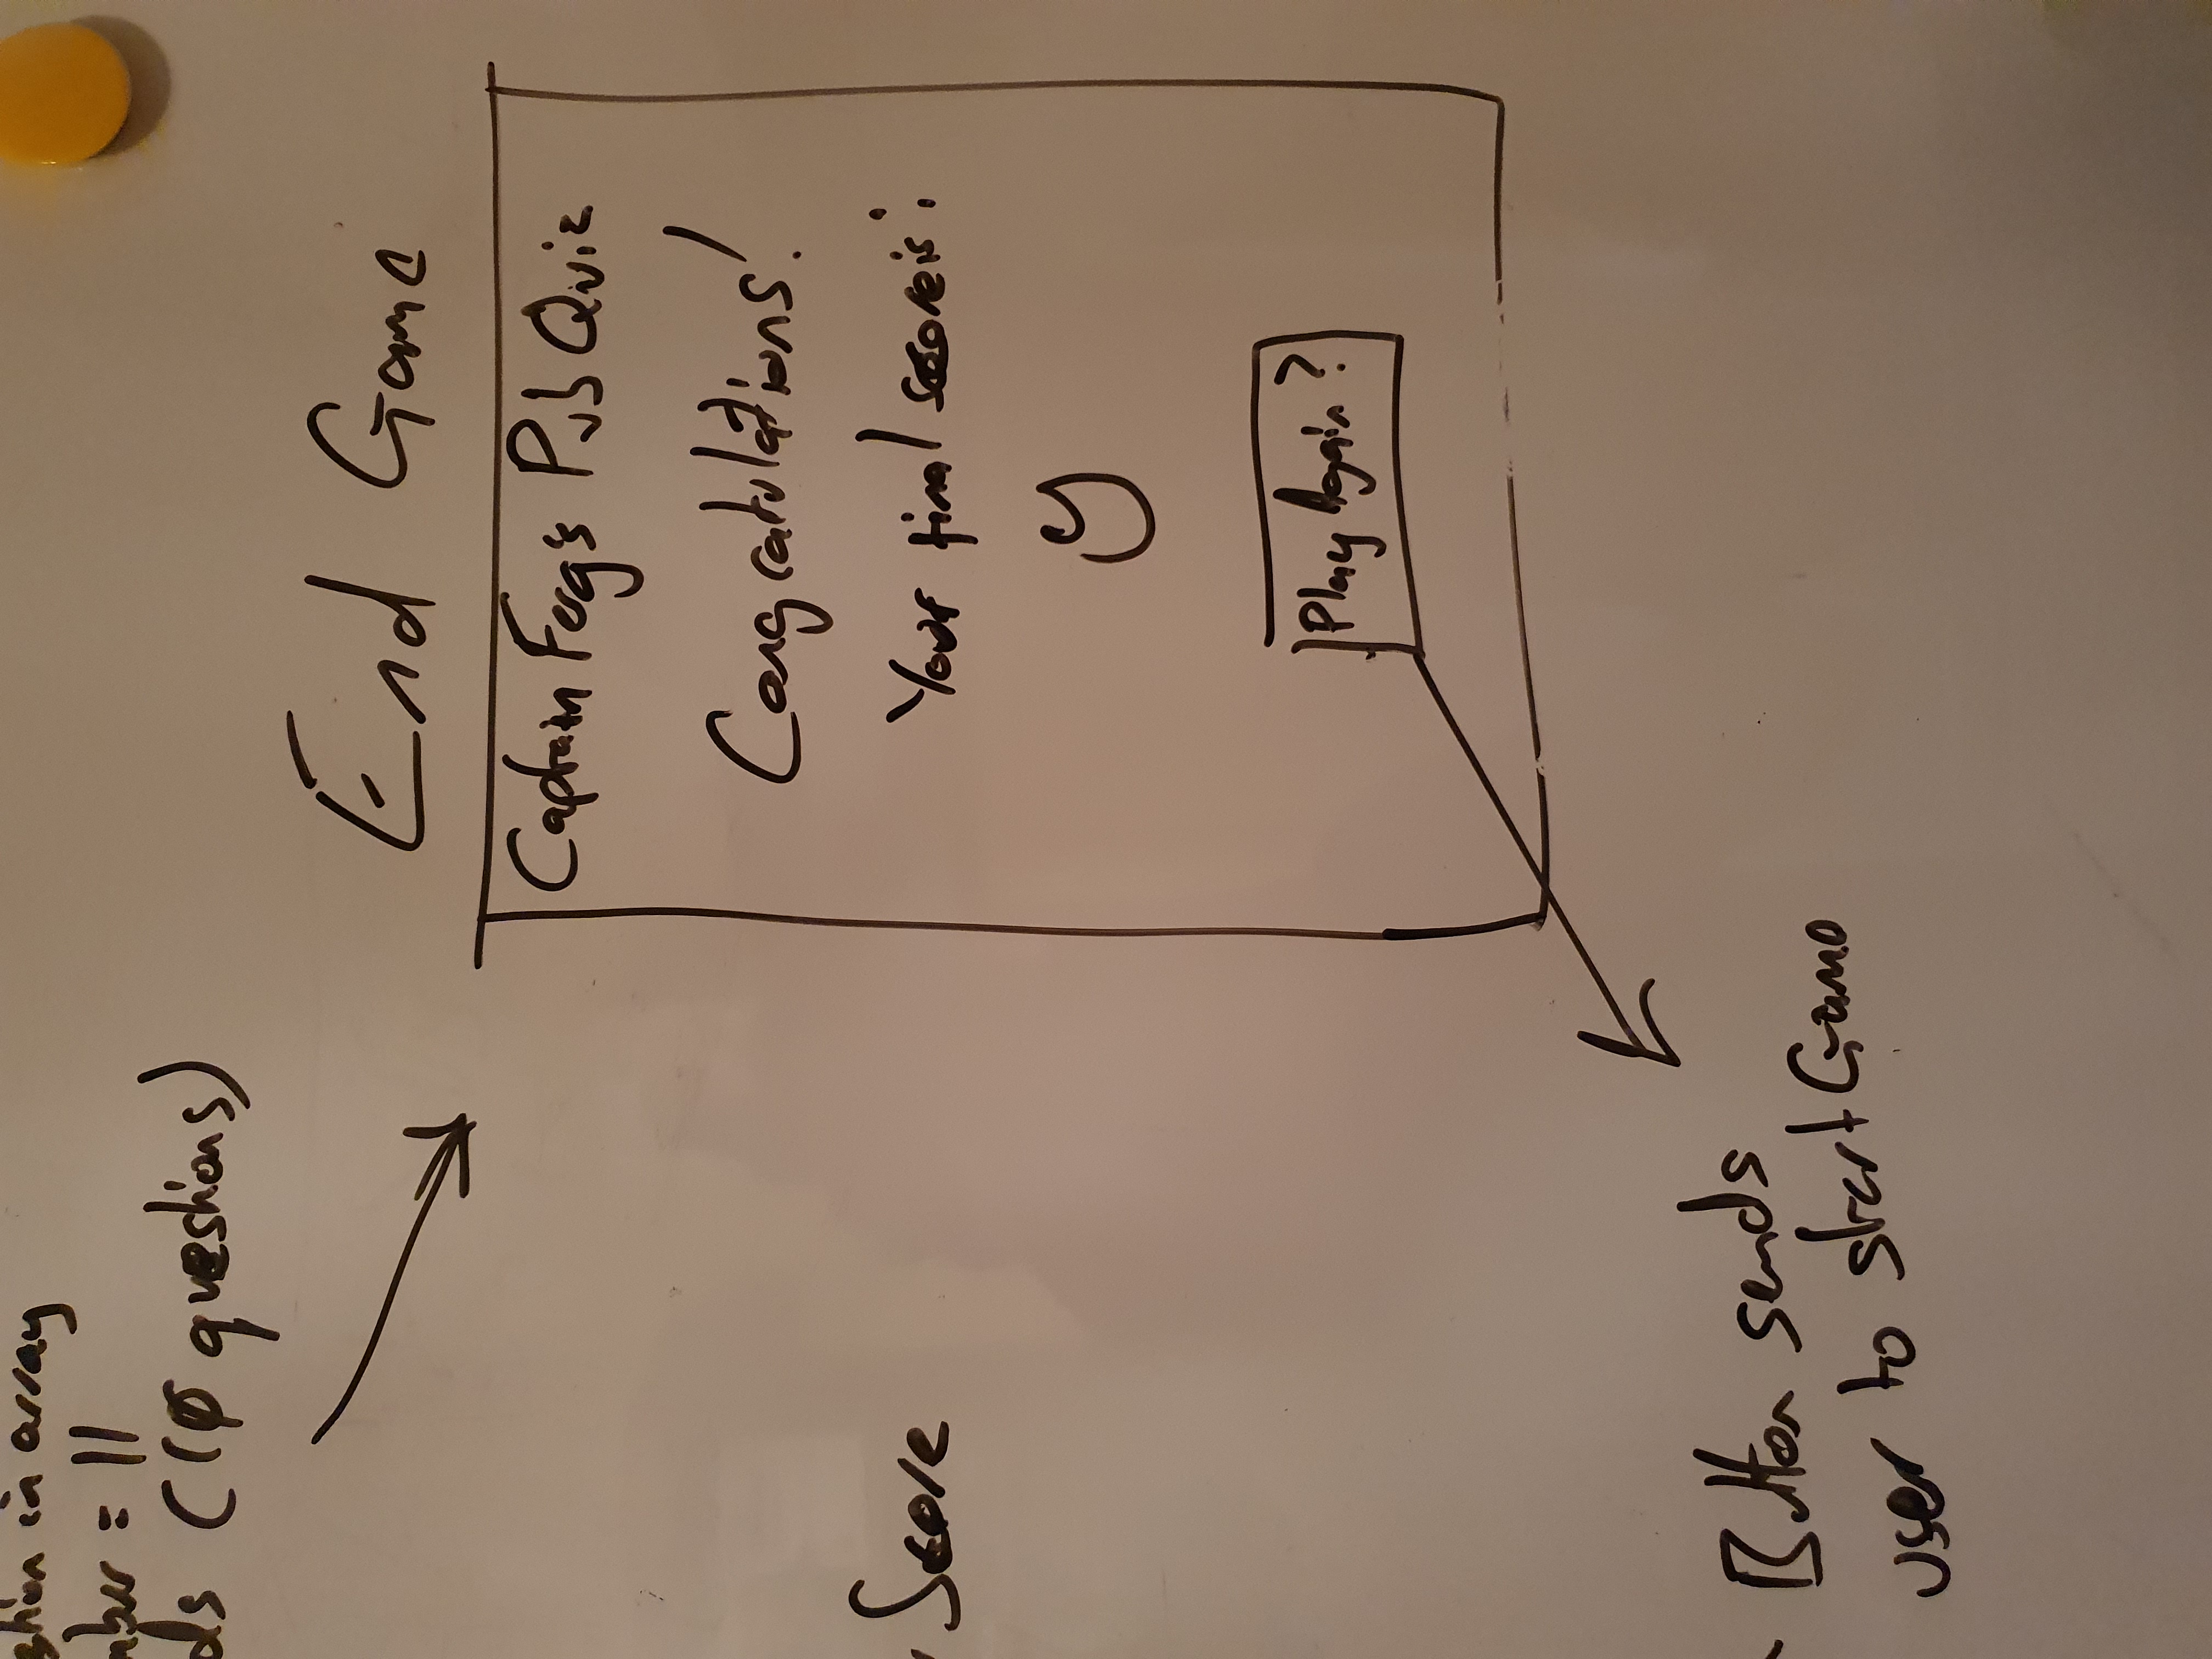 in array
= 11
(10 questions)
End Game
Captain Ferg's Pub Quiz
Congratulations!
Your final score is:
Score
y
Play Again?
Button sends
user to start Game